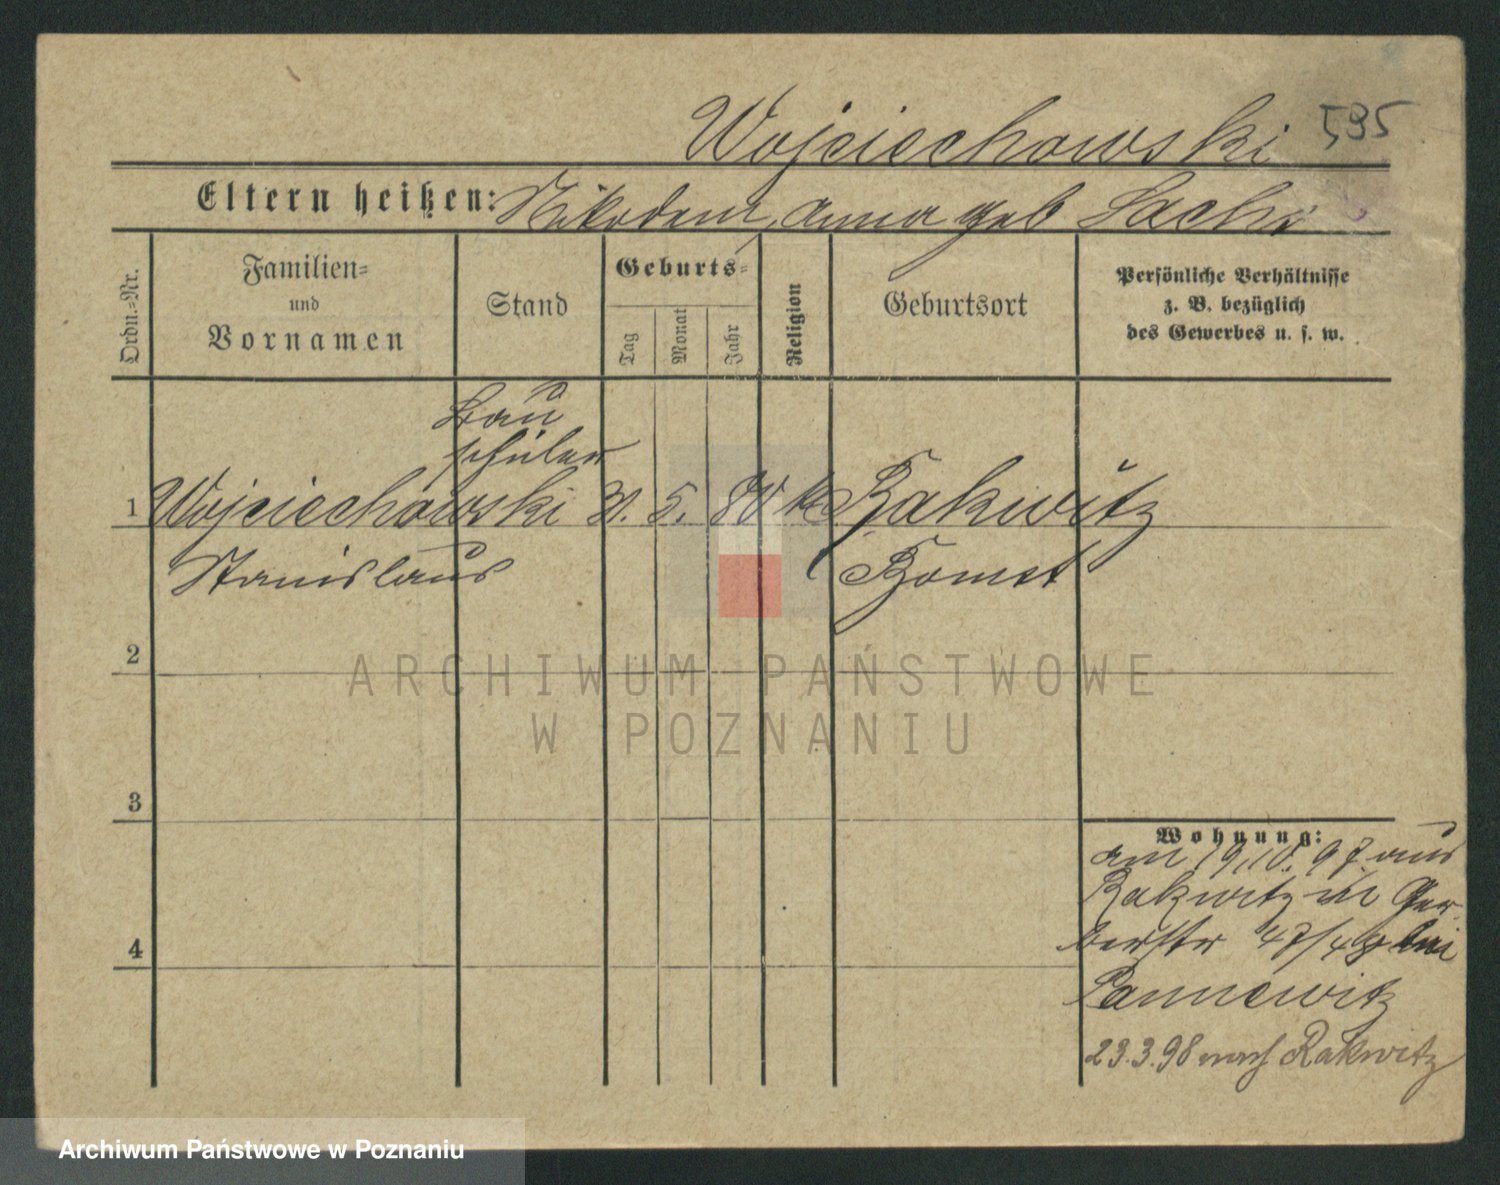 Wojciechowski 595
Eltern heißen: Nikodem, Anna geb Sachs
Ordn.-Nr.
Familien-
und
Vornamen
Stand
Geburts-
Tag
Monat
Jahr
Religion
Geburtsort
Persönliche Verhältnisse
z. B. bezüglich
des Gewerbes u. s. w.
Bau
schüler
1 Wojciechowski 5. 80 Rakwitz
Stanislaus Bomst
2
ARCHIWUM PAŃSTWOWE
W POZNANIU
3
4
Wohnung:
am 19.10.97. aus
Rakwitz in Ger-
berstr 47/48 bei
Pannewitz
23.3.98 nach Rakwitz
Archiwum Państwowe w Poznaniu